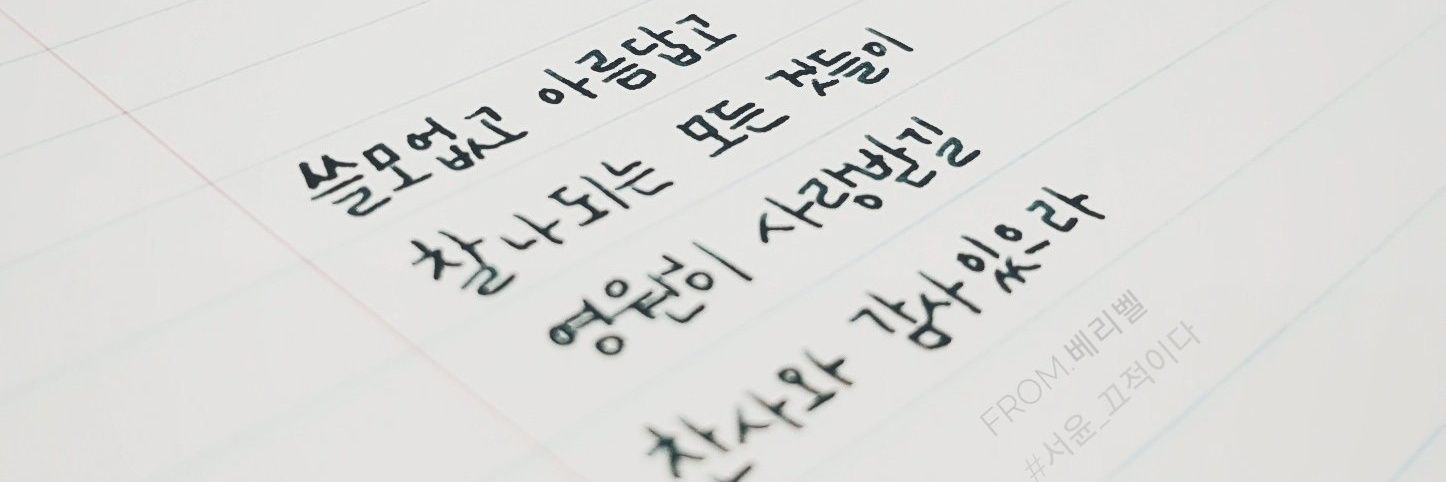 쓸모없고 아름답고
찰나되는 모든 것들이
영원이 사랑받길
찬사와 감사있으라
FROM.베리벨
#서윤_끄적이다